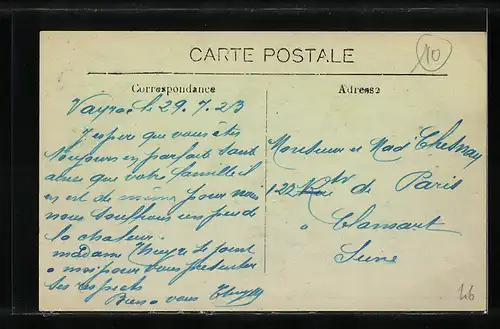 CARTE POSTALE
10
Correspondance
Adresse
Vayrac le 29.7.23
J'espere que vous êtes
toujours en parfait santé
ainsi que votre famille il
en est de même pour nous
nous souffrons un peu de
la chaleur.
madame se joint
a moi pour vous présenter
ses respects
Bien a vous
Monsieur et Mad Chesnay
122 de Paris
a Clamart
Seine